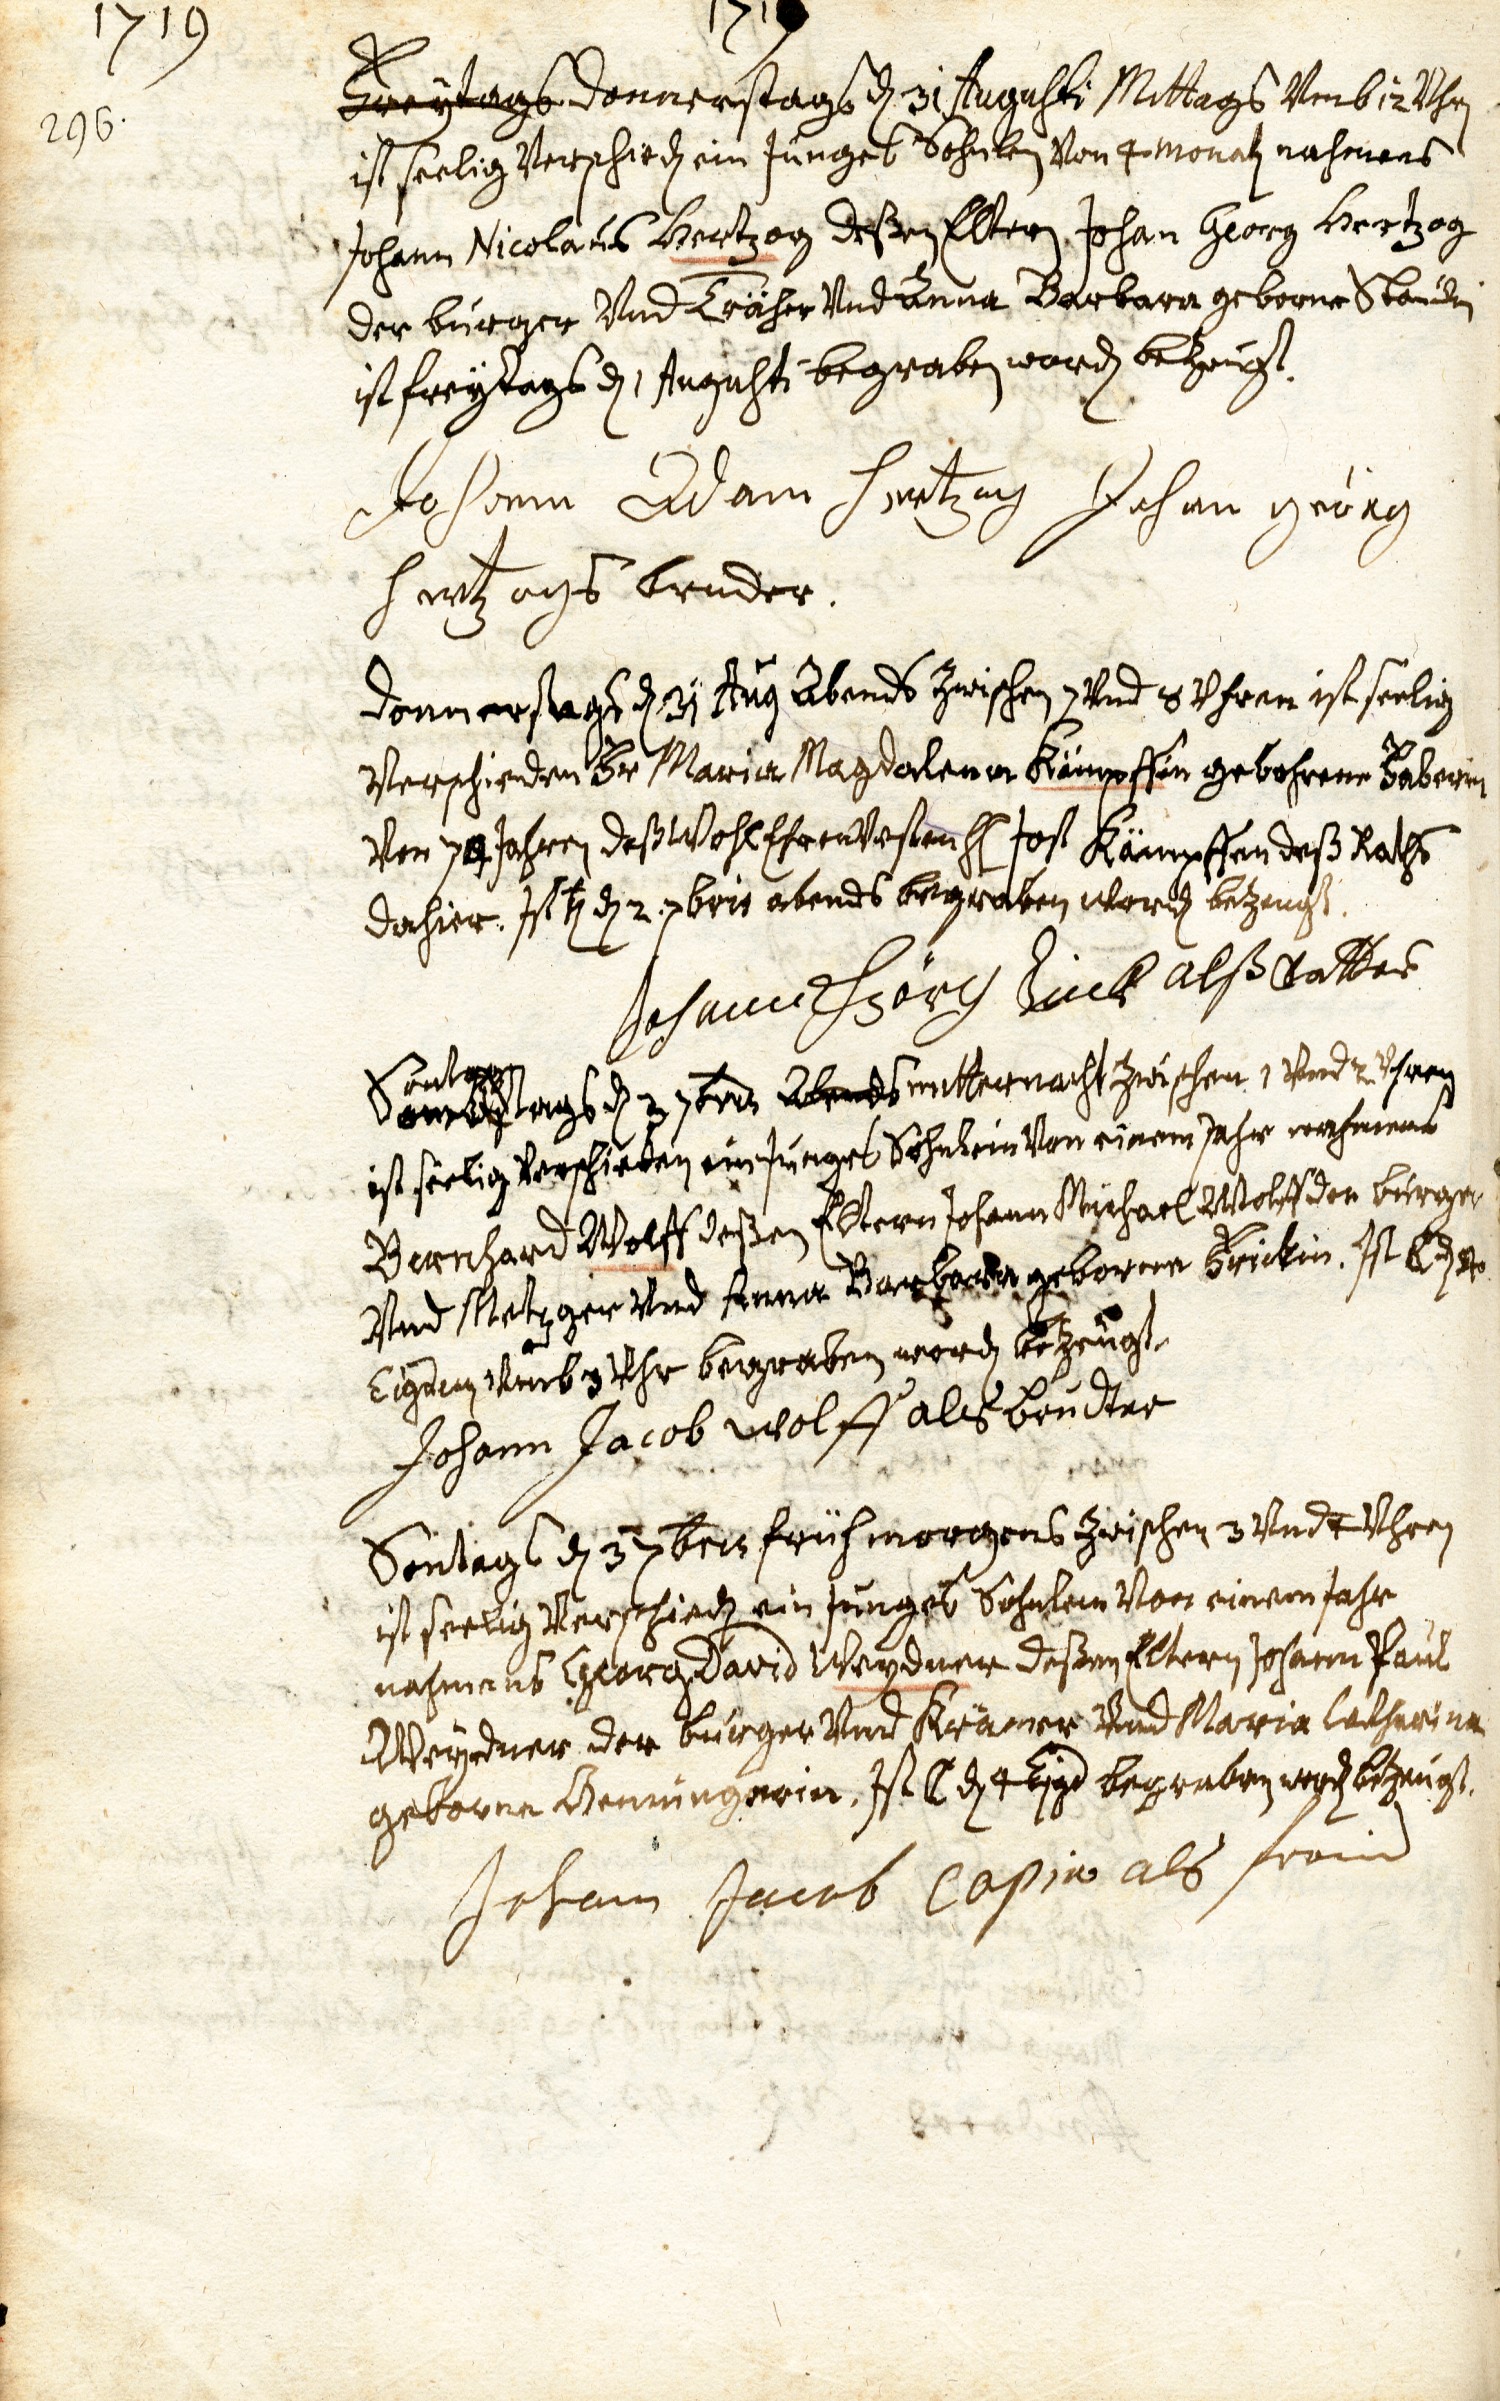 1719
1719
296.
Freytags Donnerstags d 31 Augusti Mittags Umb 12 Uhr
ist seelig verschied ein Junges Söhnlen von 4 monat nahmens
Johann Nicolaus Hertzog deßen Eltern Johan Georg Hertzog
der burger Und Und Anna Barbara geborne
ist freytags d 1 Augusti begraben word betzeugt.
Johann Adam Hertzog Johan georg
Hertzogs bruder.
Donnerstags d 31 Aug Abends zwischen 7 Und 8 Uhren ist seelig
verschieden Fr Maria Magdalena Kämpffin gebohrene Faberin
Von 74 Jahren deß WohlEhrenvesten H Jost Kämpffen deß Raths
dahier. Ist d 2. 7bris abends begraben word betzeugt.
Johann Görg Zinck alß
Sontags d 3 7bris Abends mitternacht zwischen 1 Und 2 Uhren
ist seelig verschieden ein Junges Söhnlein Von einem Jahr nahmens
Bernhard Wolff deßen Eltern Johann Michael Wolff der burger
Und Metzger Und Anna Barbara geborne Frickin. Ist d 4
Umb 3 Uhr begraben word betzeugt.
Johann Jacob Wolff als brudter
Sontags d 3 7bris früh morgens zwischen 3 Und 4 Uhren
ist seelig verschied ein Junges Söhnlein Von einem Jahr
nahmens Georg David Weydner deßen Eltern Johann Paul
Weydner der burger Und Krämer Und Maria Catharina
geborne Henningerin. Ist d 4 begraben word betzeugt.
Johann Jacob Copia als freind